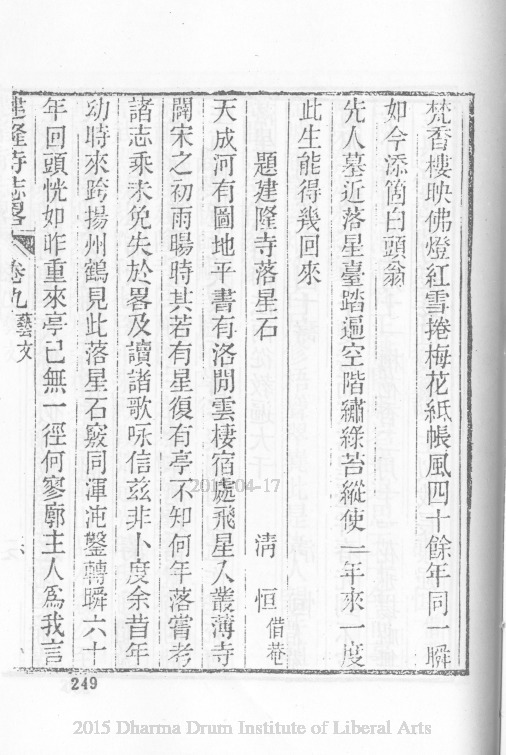 梵香樓映佛燈紅雪捲梅花紙帳風四十餘年同一瞬
如今添箇白頭翁
先人墓近落星臺踏遍空階繡綠苔縱使一年來一度
此生能得幾回來
題建隆寺落星石
清恒借菴
天成河有圖地平書有洛閒雲棲宿處飛星入叢薄寺
闢宋之初雨暘時其若有星復有亭不知何年落嘗考
諸志乘未免失於畧及讀諸歌咏信茲非卜度余昔年
幼時來跨揚州鶴見此落星石竅同渾沌鑿轉瞬六十
年回頭恍如昨重來亭已無一徑何寥廓主人爲我言
建隆寺志畧
卷九
藝文
六
249
2015-04-17
2015 Dharma Drum Institute of Liberal Arts